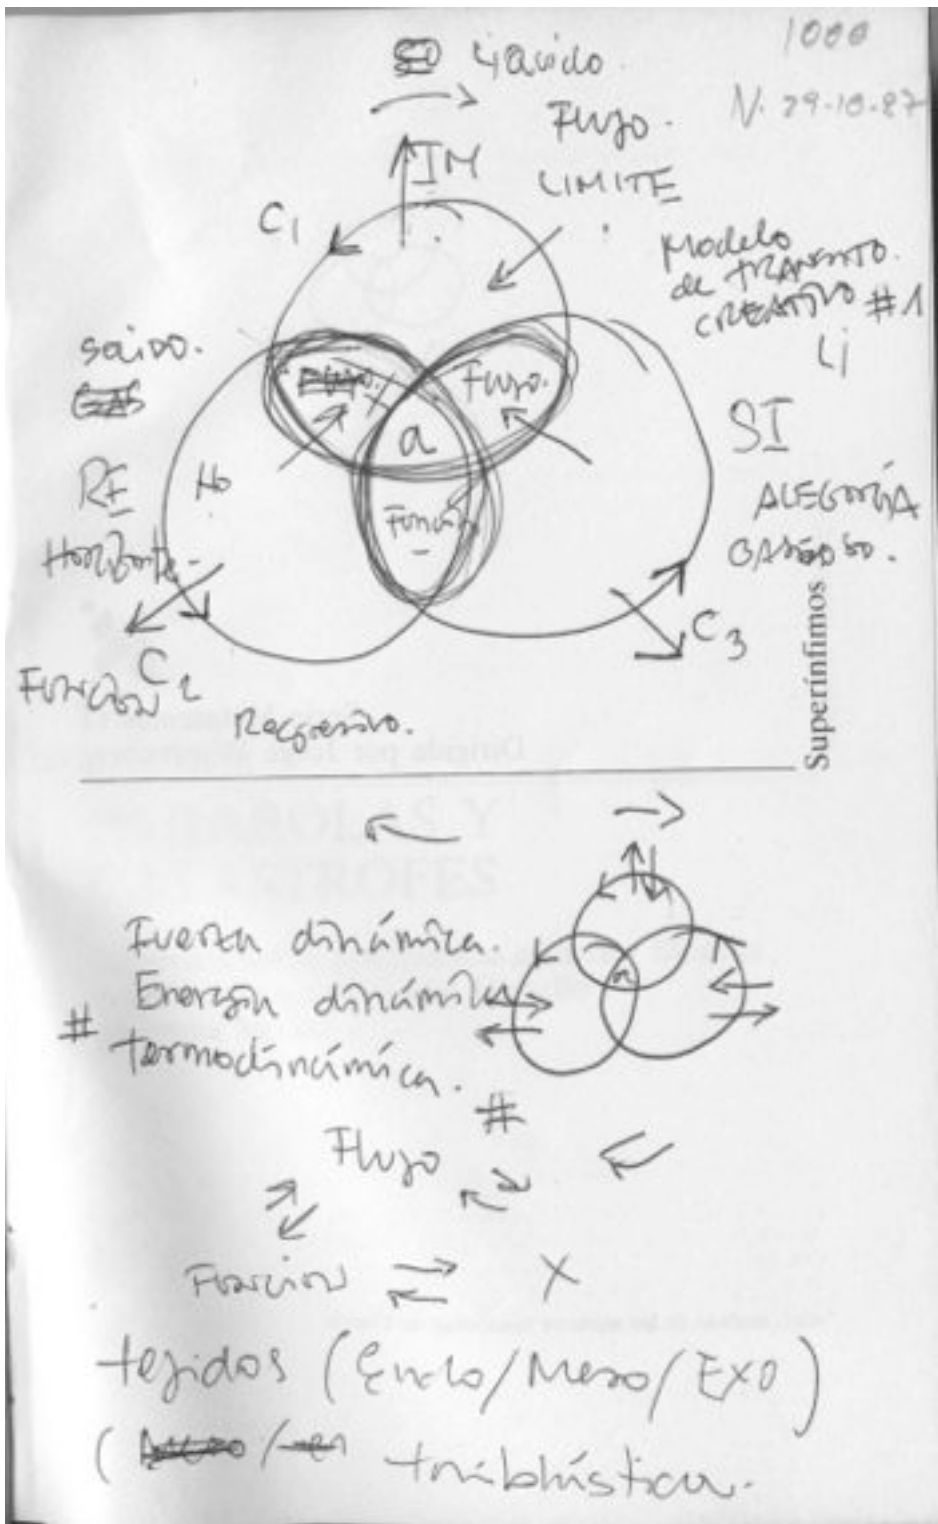 1000
N. 29-10-87
Liquido.
Flujo.
IM
LIMITE
C1
Modelo
de TRANSITO.
CREATIVO #1
Li
Solido.
GAS
Flujo.
SI
a
RE
Ho
ALEGORÍA
Función
GASEOSO.
Horizonte
Superínfimos
C3
C2
Función
Regresivo.
Fuerza dinámica.
Energía dinámica
a
# termodinámica.
#
Flujo
Función
X
tejidos (Endo/Meso/EXO)
( triblástica.